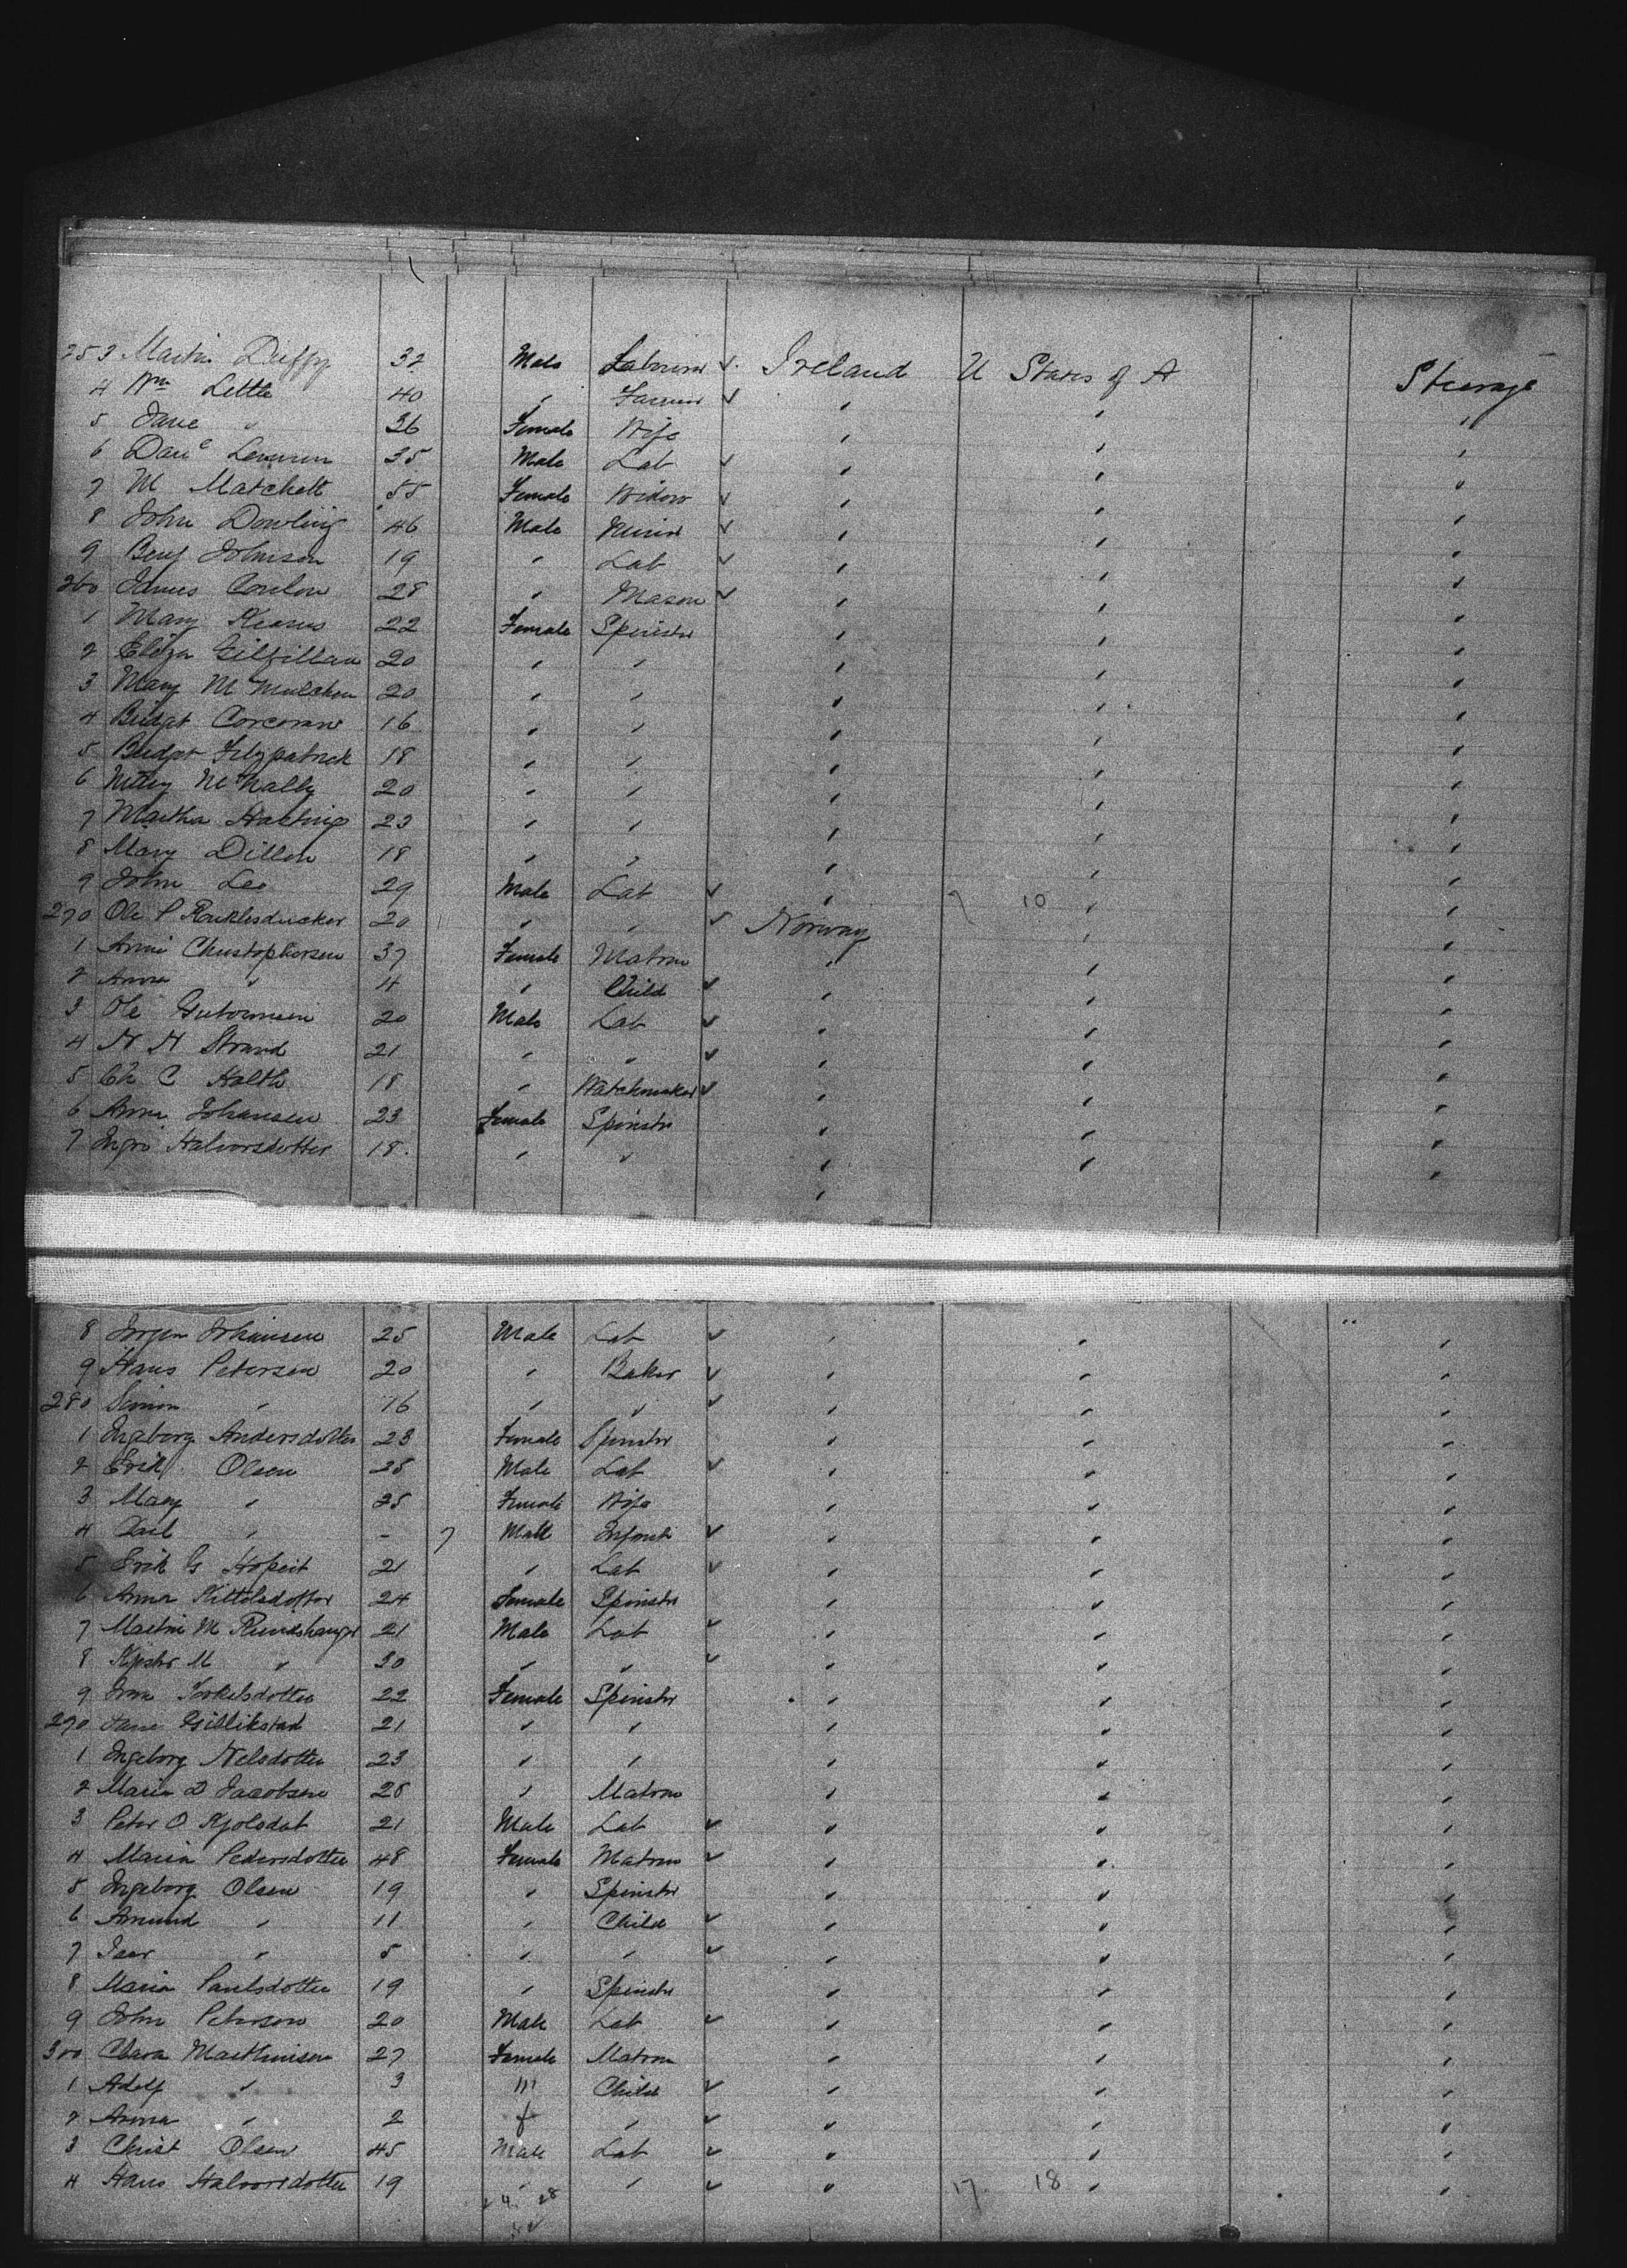 253 Martin Duffy 32 Male Labourer ✓ Ireland U States of A Steerage
4 Wm Little 40 " Farmer ✓ " " "
5 Jane " 36 Female Wife " " "
6 35 Male Lab ✓ " " "
7 M Matchett 55 Female Widow ✓ " " "
8 John Dowling 46 Male Miner ✓ " " "
9 Benj Johnson 19 " Lab ✓ " " "
260 James Conlon 28 " Mason ✓ " " "
1 Mary Kearns 22 Female Spinster " " "
2 Eliza Gilfillan 20 " " " " "
3 Mary 20 " " " " "
4 Bridget Corcoran 16 " " " " "
5 Bridget Fitzpatrick 18 " " " " "
6 McNally 20 " " " " "
7 Martha Hastings 23 " " " " "
8 Mary Dillon 18 " " " " "
9 John Lee 29 Male Lab ✓ " 10 " "
270 Ole P 20 " " ✓ Norway " "
1 Anne Christophersen 37 Female Matron " " "
2 Anna " 4 " Child ✓ " " "
3 Ole 20 Male Lab ✓ " " "
4 N H Strand 21 " " ✓ " " "
5 Ch C Holth 18 " Watchmaker ✓ " " "
6 Anna Johansen 23 Female Spinster " " "
7 Ingri Halvorsdotter 18 " " " " "
8 Jorgen Johansen 25 Male Lab ✓ " " "
9 Hans Petersen 20 " Baker ✓ " " "
280 Simon " 16 " " ✓ " " "
1 Ingeborg Andersdotter 23 Female Spinster " " "
2 Erik Olsen 28 Male Lab ✓ " " "
3 Mary " 25 Female Wife " " "
4 " - 7 Male Infant ✓ " " "
5 Erik G 21 " Lab ✓ " " "
6 Anna Kittelsdotter 24 Female Spinster " " "
7 Martin M 21 Male Lab ✓ " " "
8 M " 30 " " ✓ " " "
9 Torkelsdotter 22 Female Spinster " " "
290 Gillikstad 21 " " " " "
1 Ingeborg Nelsdotter 23 " " " " "
2 Maria D Jacobsen 28 " Matron " " "
3 Peter O 21 Male Lab ✓ " " "
4 Maria Pedersdotter 48 Female Matron ✓ " " "
5 Ingeborg Olsen 19 " Spinster " " "
6 Amund " 11 " Child ✓ " " "
7 " 5 " " ✓ " " "
8 Maria Paulsdotter 19 " Spinster " " "
9 John Peterson 20 Male Lab ✓ " " "
300 Clara Marthinsen 27 Female Matron " " "
1 Adolf " 3 m Child ✓ " " "
2 Anna " 2 f " ✓ " " "
3 Christ Olsen 45 Male Lab ✓ " " "
4 Hans Halvorsdotter 19 " " ✓ " 17 18 " "